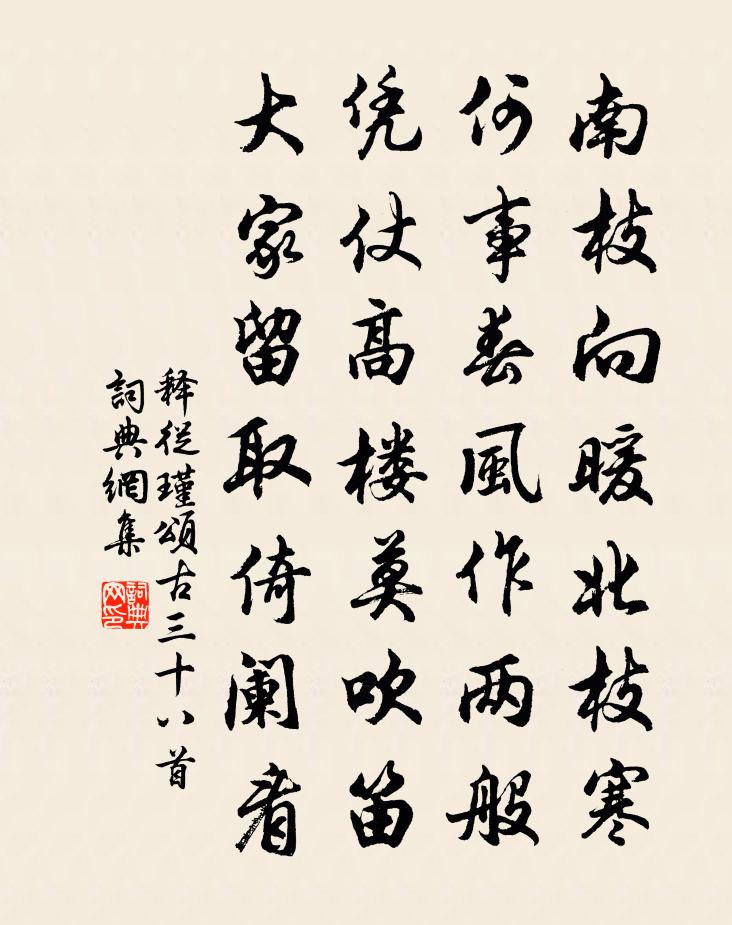 南枝向暖北枝寒
何事春風作两般
凭仗高楼莫吹笛
大家留取倚阑看
释從瑾頌古三十八首
詞典網集
詞典网印